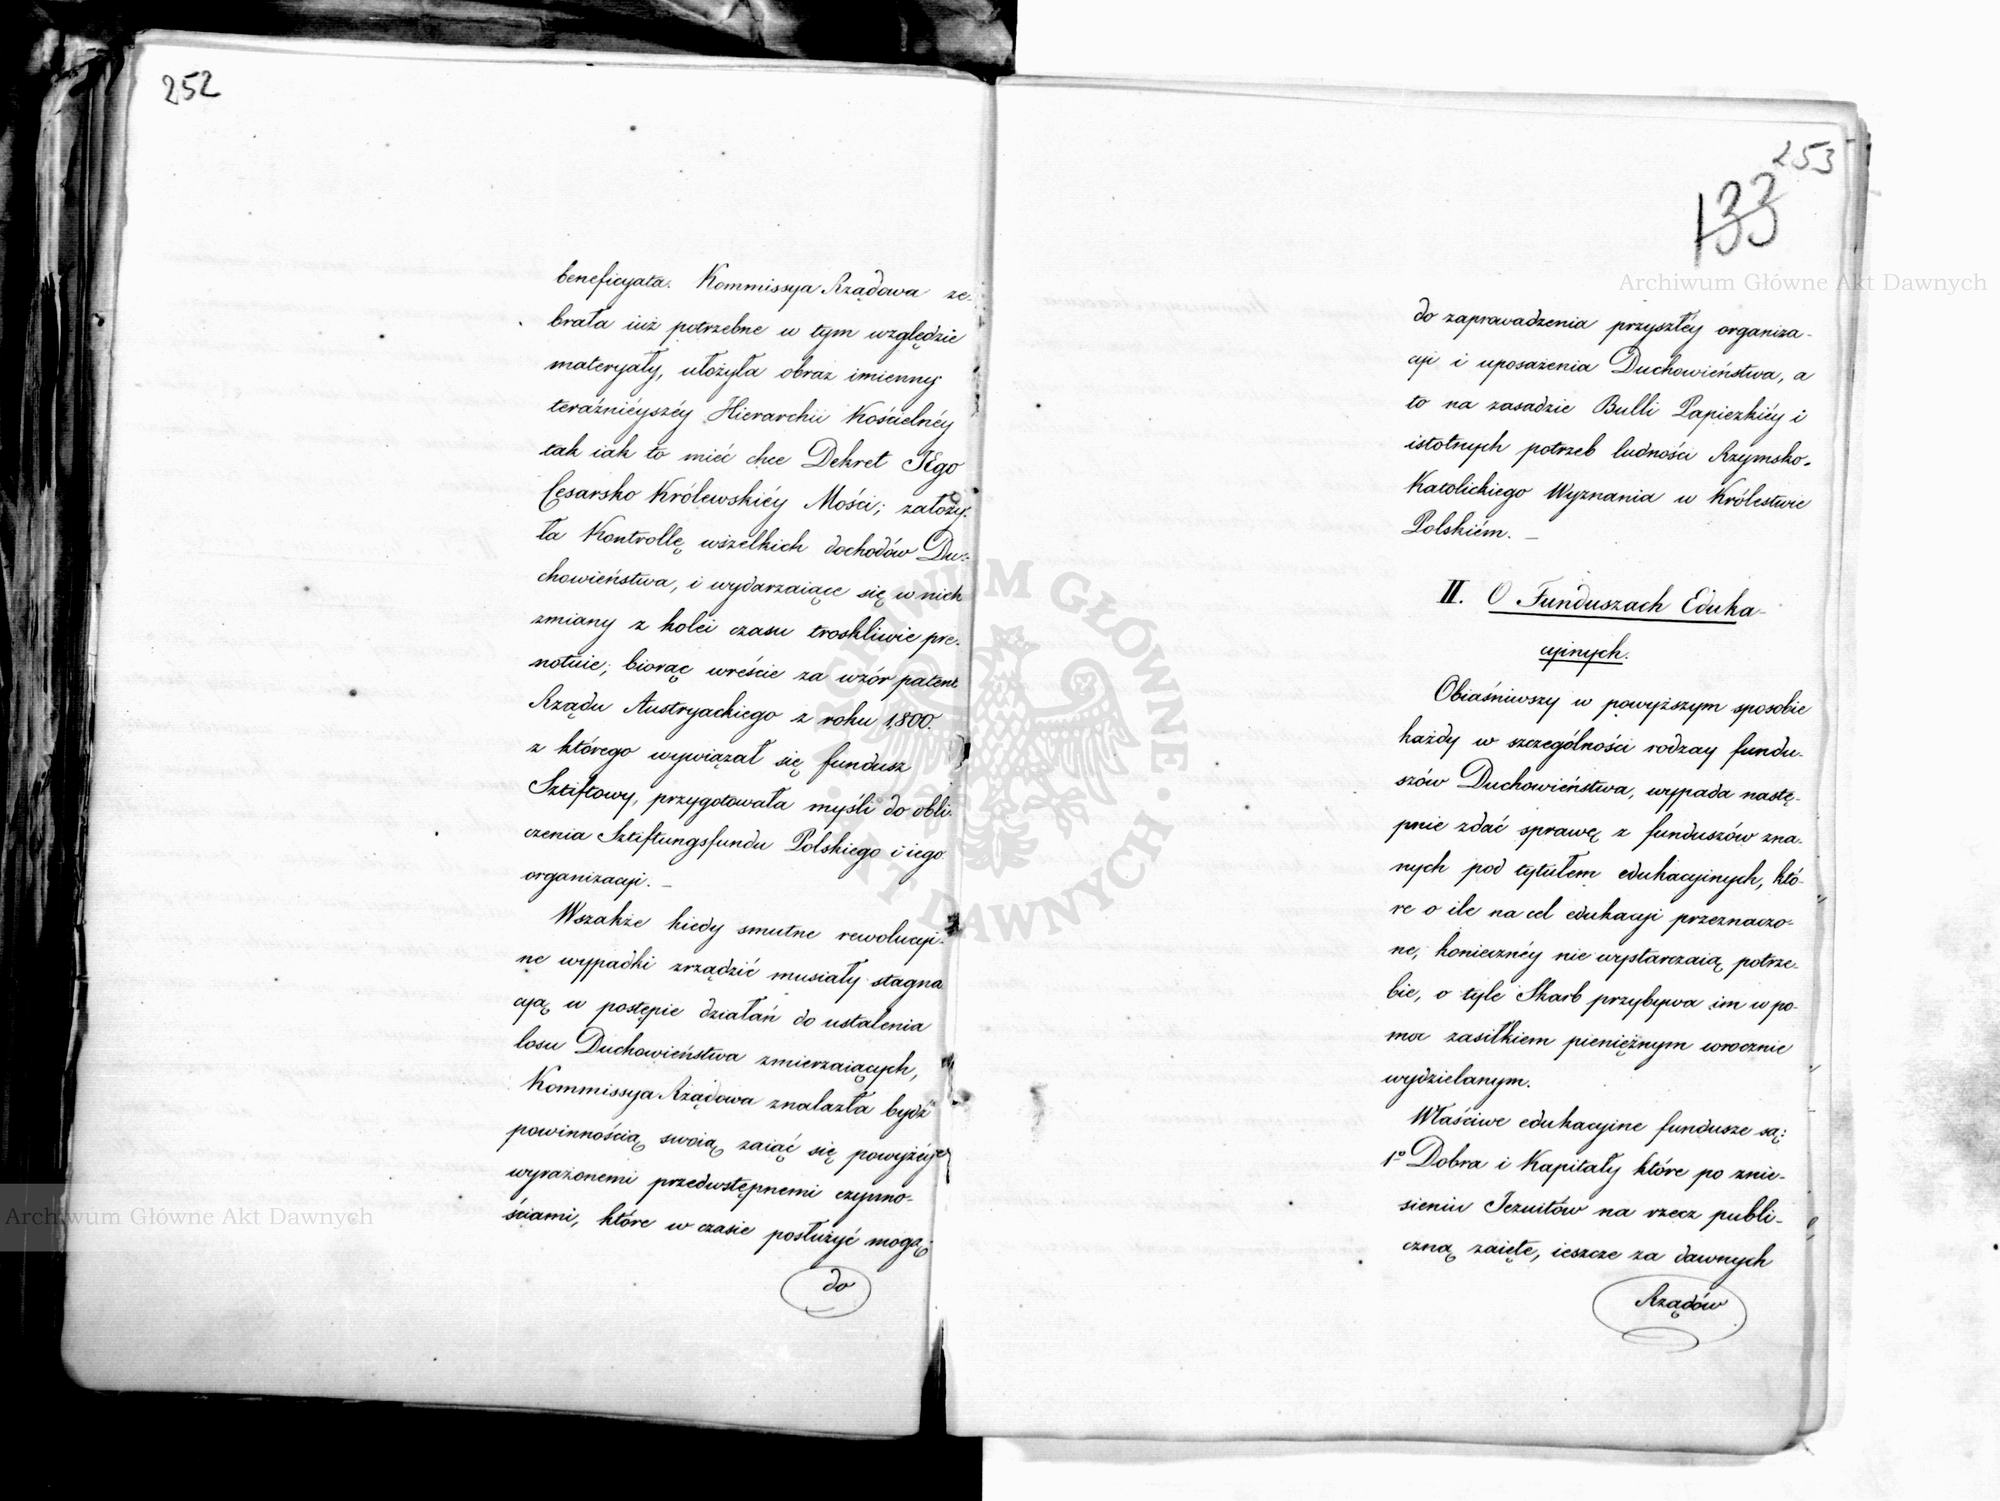 252
beneficyata. Kommissya Rządowa ze-
brała iuż potrzebne w tym względzie
materyały, ułożyła obraz imienny
teraźnieyszéy Hierarchii Kościelnéy
tak iak to mieć chce Dekret JEgo
Cesarsko Królewskiéy Mości; założy-
ła Kontrollę wszelkich dochodów Du-
chowieństwa, i wydarzaiące się w nich
zmiany z kolei czasu troskliwie pre-
notuie; biorąc wreście za wzór patent
Rządu Austryackiego z roku 1800.
z którego wywiązał się fundusz
Sztiftowy, przygotowała myśli do obli-
czenia Sztiftungsfundu Polskiego i iego
organizacyi. —
Wszakże kiedy smutne rewolucyi-
ne wypadki zrządzić musiały stagna
cyą w postępie działań do ustalenia
losu Duchowieństwa zmierzaiących,
Kommissya Rządowa znalazła bydź
powinnością swoią zaiąć się powyżéy
wyrażonemi przedwstępnemi czynno-
ściami, które w czasie posłużyć mogą
do
253
133
do zaprowadzenia przyszłéy organiza-
cyi i uposażenia Duchowieństwa, a
to na zasadzie Bulli Papiezkiéy i
istotnych potrzeb ludności Rzymsko-
Katolickiego Wyznania w Królestwie
Polskiém. —
II. O Funduszach Eduka-
cyinych.
Obiaśniwszy w powyższym sposobie
każdy w szczególności rodzay fundu-
szów Duchowieństwa, wypada nastę-
pnie zdać sprawę z funduszów zna-
nych pod tytułem edukacyinych, któ-
re o ile na cel edukacyi przeznaczo-
ne, koniecznéy nie wystarczaią potrze-
bie, o tyle Skarb przybywa im w po-
moc zasiłkiem pieniężnym corocznie
wydzielanym.
Właściwe edukacyine fundusze są:
1º Dobra i Kapitały które po znie-
sieniu Jezuitów na rzecz publi-
czną zaięte, ieszcze za dawnych
Rządów
Archiwum Główne Akt Dawnych
Archiwum Główne Akt Dawnych
ARCHIWUM GŁÓWNE AKT DAWNYCH